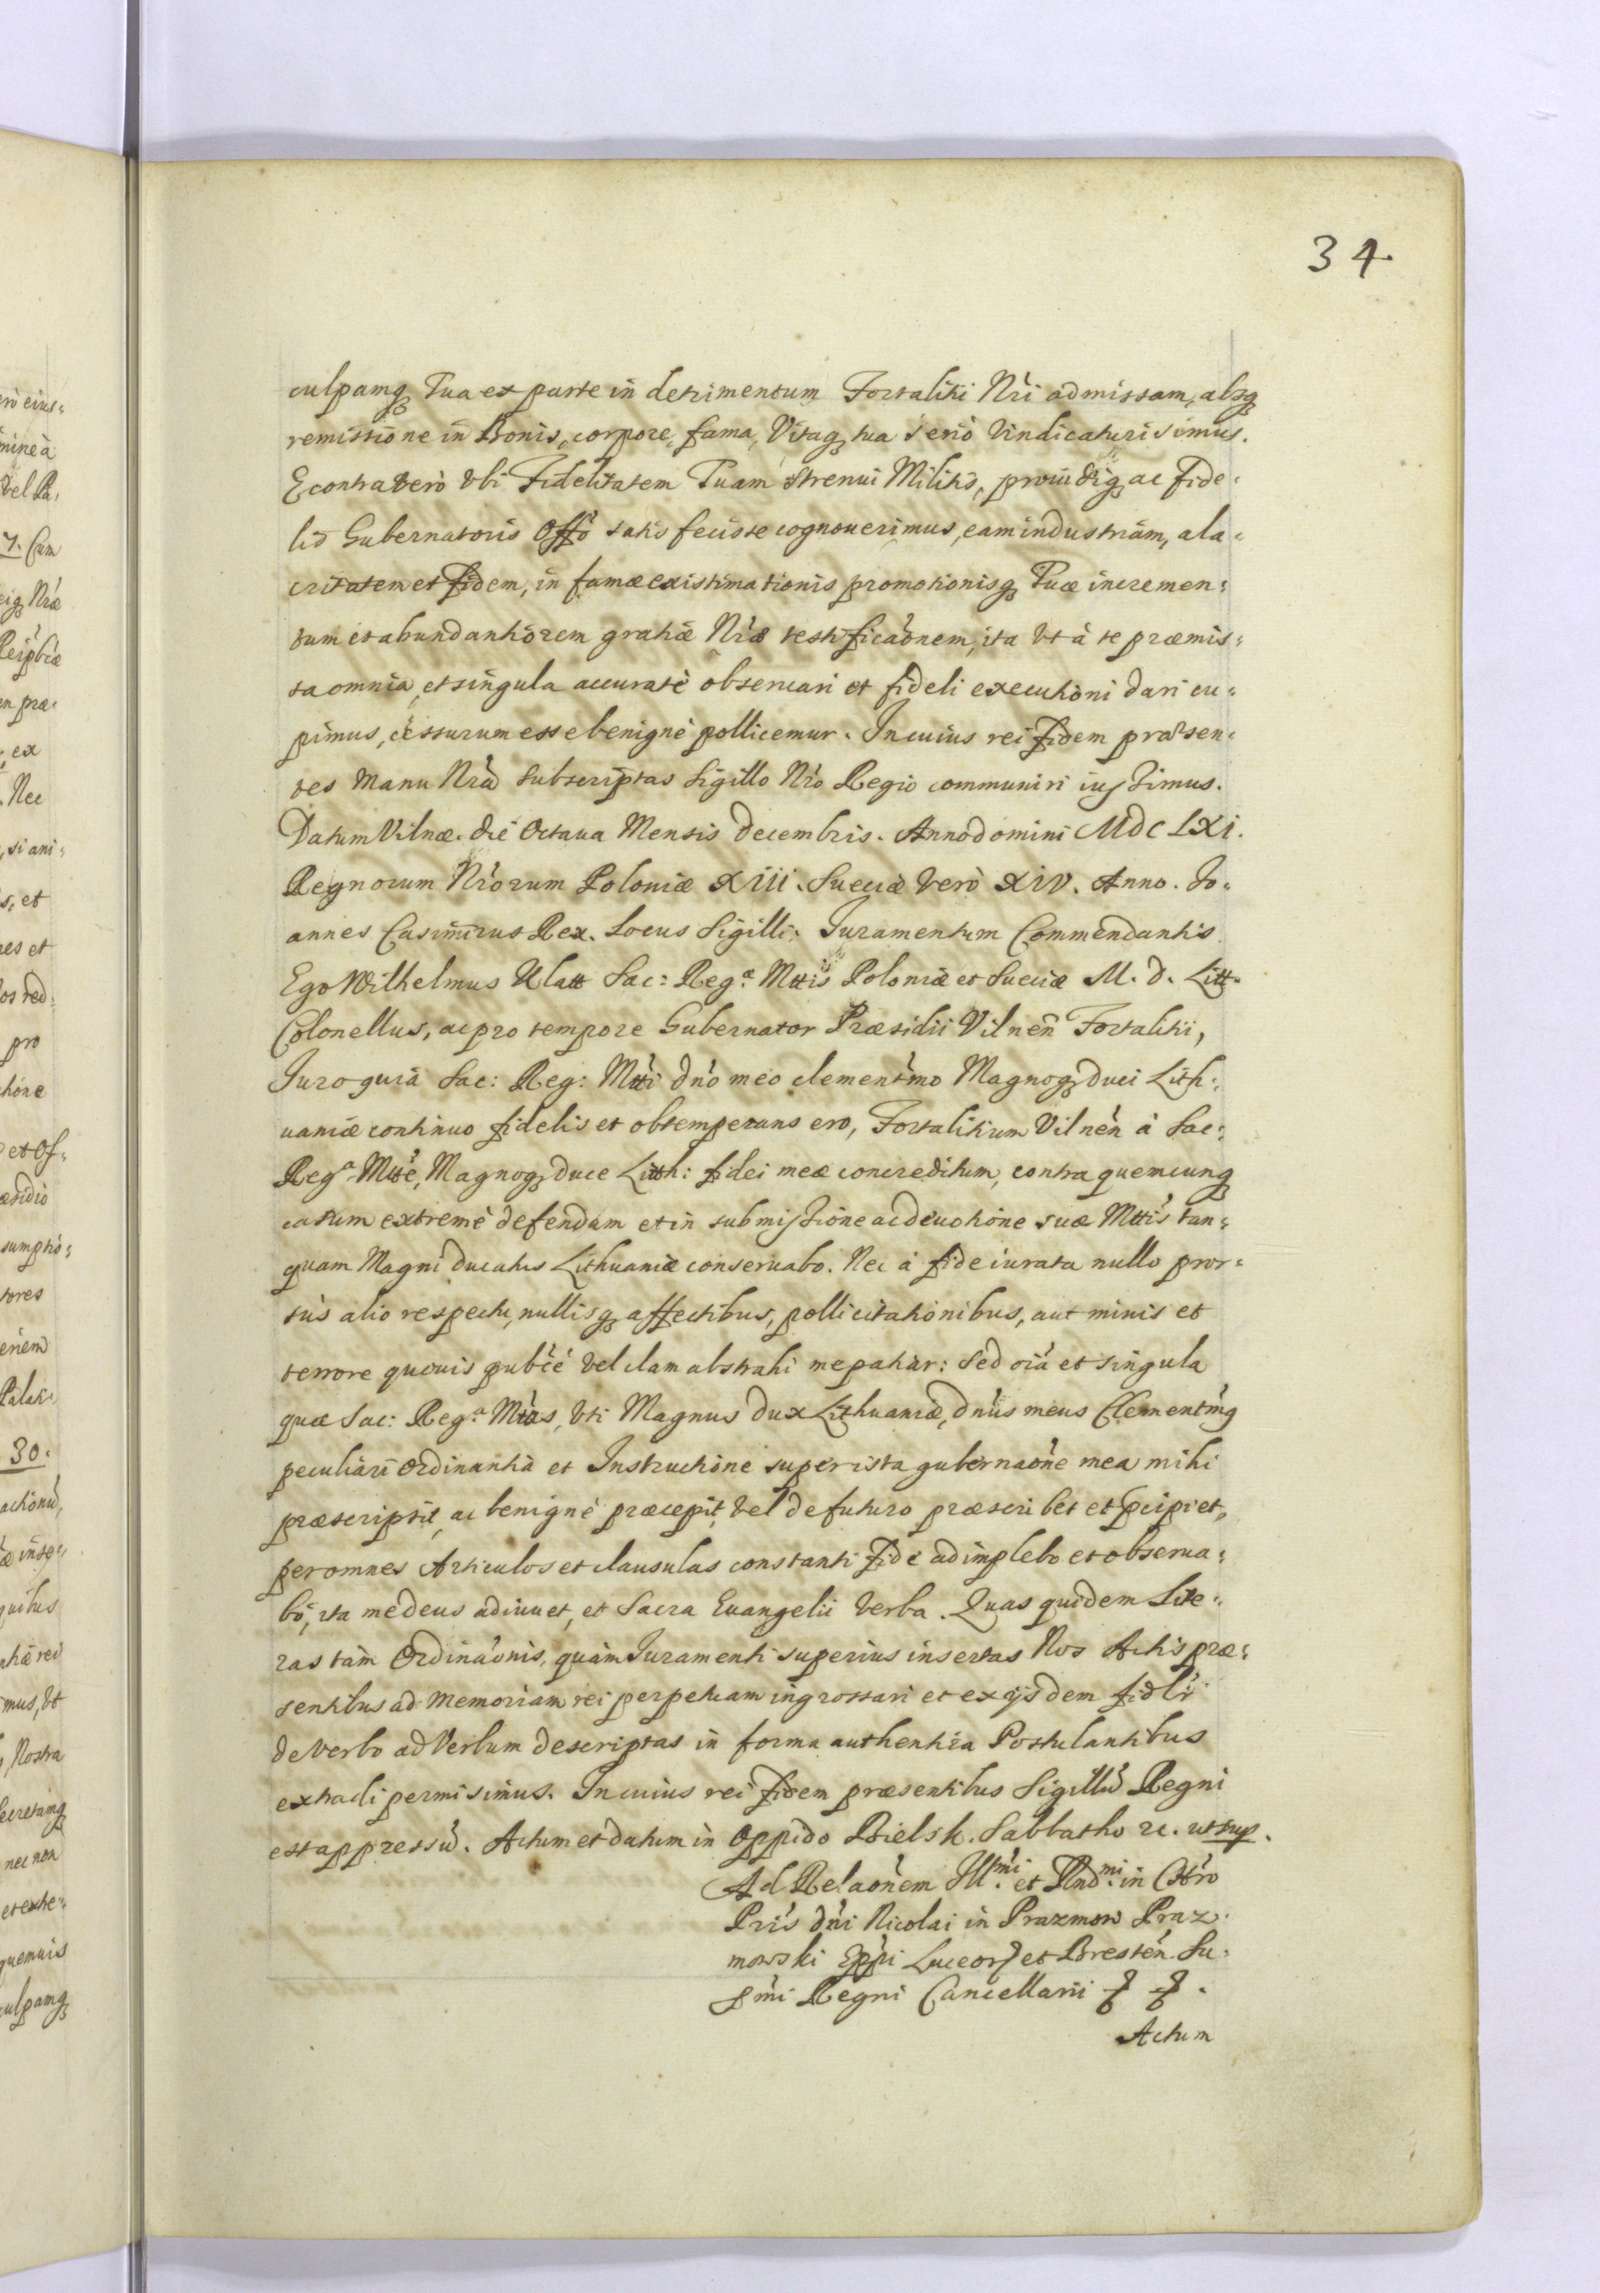 34.
culpamq Tua ex parte in detrimentum Fortalitii Nri admissam, absq
remissione in Bonis, corpore, fama, Vitaq tua serio Vindicaturi simus.
E contra vero Vbi Fidelitatem Tuam Strenui Militis, prouidiq ac fide-
lis Gubernatoris Offo satis fecisse cognouerimus, eam industriam, ala-
critatem et fidem, in famæ existimationis promotionisq Tuæ incremen-
tum et abundantiorem gratiæ Nræ testificaonem, ita Vt à te præmis-
sa omnia, et singula accuratè obseruari et fideli executioni dari cu-
pimus, cessurum esse benignè pollicemur. In cuius rei fidem præsen-
tes Manu Nra subscriptas Sigillo Nro Regio communiri iussimus.
Datum Vilnæ. die Octaua Mensis Decembris. Anno domini MdcLXi.
Regnorum Nrorum Poloniæ Xiii. Sueciæ Verò XiV. Anno. Jo-
annes Casimirus Rex. Locus Sigilli. Juramentum Commendantis
Ego Wilhelmus Ulatt Sac: Reg.ª Mttis Poloniæ et Sueciæ M. d. Litt.
Colonellus, ac pro tempore Gubernator Præsidii Vilnen Fortalitii,
Juro quià Sac: Reg: Mtti dno meo clementmo Magnoq duci Lith-
uaniæ continuo fidelis et obtemperans ero, Fortalitium Vilnen à Sac:
Regª Mtte, Magnoq duce Litth: fidei meæ concreditum, contra quemcunq
casum extremè defendam et in submissione ac deuotione suæ Mttis tan-
quam Magni ducatus Lithuaniæ conseruabo. Nec à fide iurata nullo pror-
sùs alio respectu, nullisq affectibus, pollicitationibus, aut minis et
terrore quouis pubcé vel clam abstrahi me patiar: Sed oia et singula
quæ Sac: Reg:ª Mtas, Vti Magnus dux Lithuaniæ, dnus meus Clementmq
peculiari Ordinantia et Instructione super ista gubernaone mea mihi
præscripsit, ac benignè præcepit, Vel de futuro præscribet et pcipiet,
per omnes Articulos et clausulas constanti fide adimplebo et obserua-
bo, ita me deus adiuuet, et Sacra Euangelii Verba. Quas quidem Lite-
ras tàm Ordinaonis, quàm Juramenti superius insertas Nos Actis præ-
sentibus ad Memoriam rei perpetuam ingrossari et ex ijsdem fidlr
de Verbo ad Verbum descriptas in forma authentica Postulantibus
extradi permisimus. In cuius rei fidem præsentibus Sigillu Regni
est appressu. Actum et datum in Oppido Bielsk. Sabbatho rc. ut sup.
Ad Relaonem Ill:mi et Rnd:mi in Chro
Pris dni Nicolai in Prazmow Praz-
mowski Eppi Luceor et Bresten Su-
pmi Regni Cancellarii
Actum